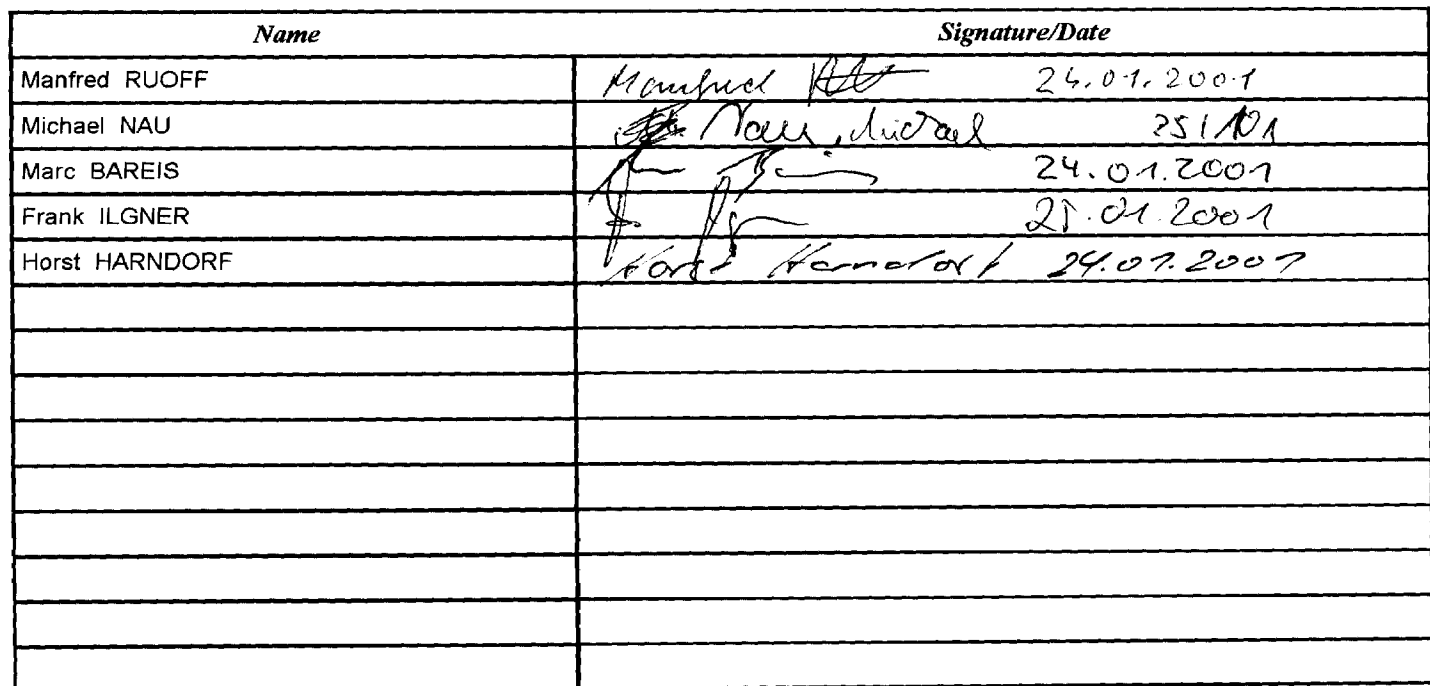 Name Signature/Date
Manfred RUOFF Manfred 24.01.2001
Michael NAU Nau, Michael 25/101
Marc BAREIS 24.01.2001
Frank ILGNER 25.01.2001
Horst HARNDORF Horst Harndorf 24.01.2001